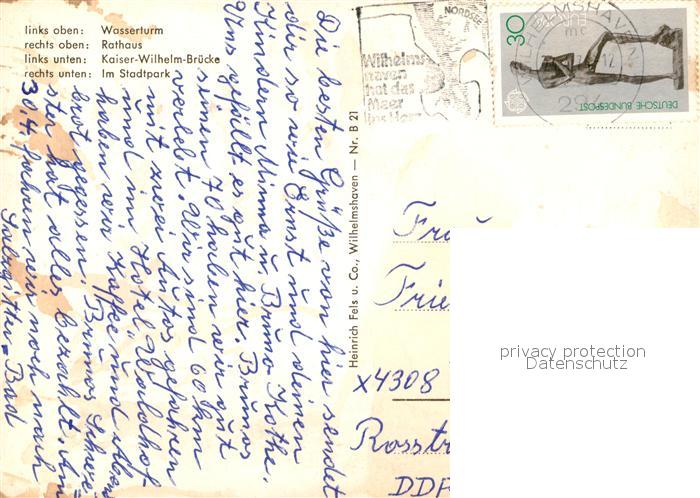 links oben: Wasserturm
rechts oben: Rathaus
links unten: Kaiser-Wilhelm-Brücke
rechts unten: Im Stadtpark
Die besten Grüße von hier sendet
dir so wie Ernst und deinen
Kindern Minna u. Bruno Kothe.
Uns gefällt es gut hier. Brunos
seinen 70 haben wir gut
verlebt. Wir sind 60 km
mit zwei Autos gefahren
und im Hotel Waldhof
haben wir Kaffee und Abend
brot gegessen Brunos Schwe
ster hat alles bezahlt. Am
30.4 fahren wir noch nach
Salzgitter-Bad
Heinrich Fels u. Co., Wilhelmshaven — Nr. B 21
NORDSEE
Wilhelms
haven
hat das
Meer
WILHELMSHAVEN
mc
12
30
EUROPA
DEUTSCHE BUNDESPOST
Frie
x4308
Rosstr
DDR
privacy protection
Datenschutz